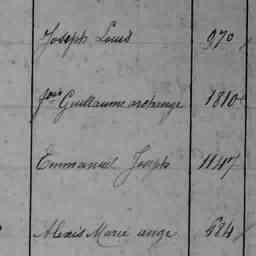 Joseph Louis 970
Jean Guillaume archange 1810
Emmanuel Joseph 1147
Alexis Marie ange 684